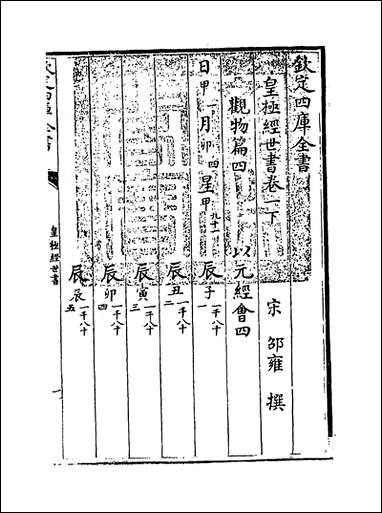 欽定四庫全書
皇極經世書卷一下
宋 邵雍 撰
觀物篇四 以元經會四
日甲一 月卯四 星甲九十一 辰子一千八十一
辰丑一千八十二
辰寅一千八十三
辰卯一千八十四
辰辰一千八十五
皇極經世書